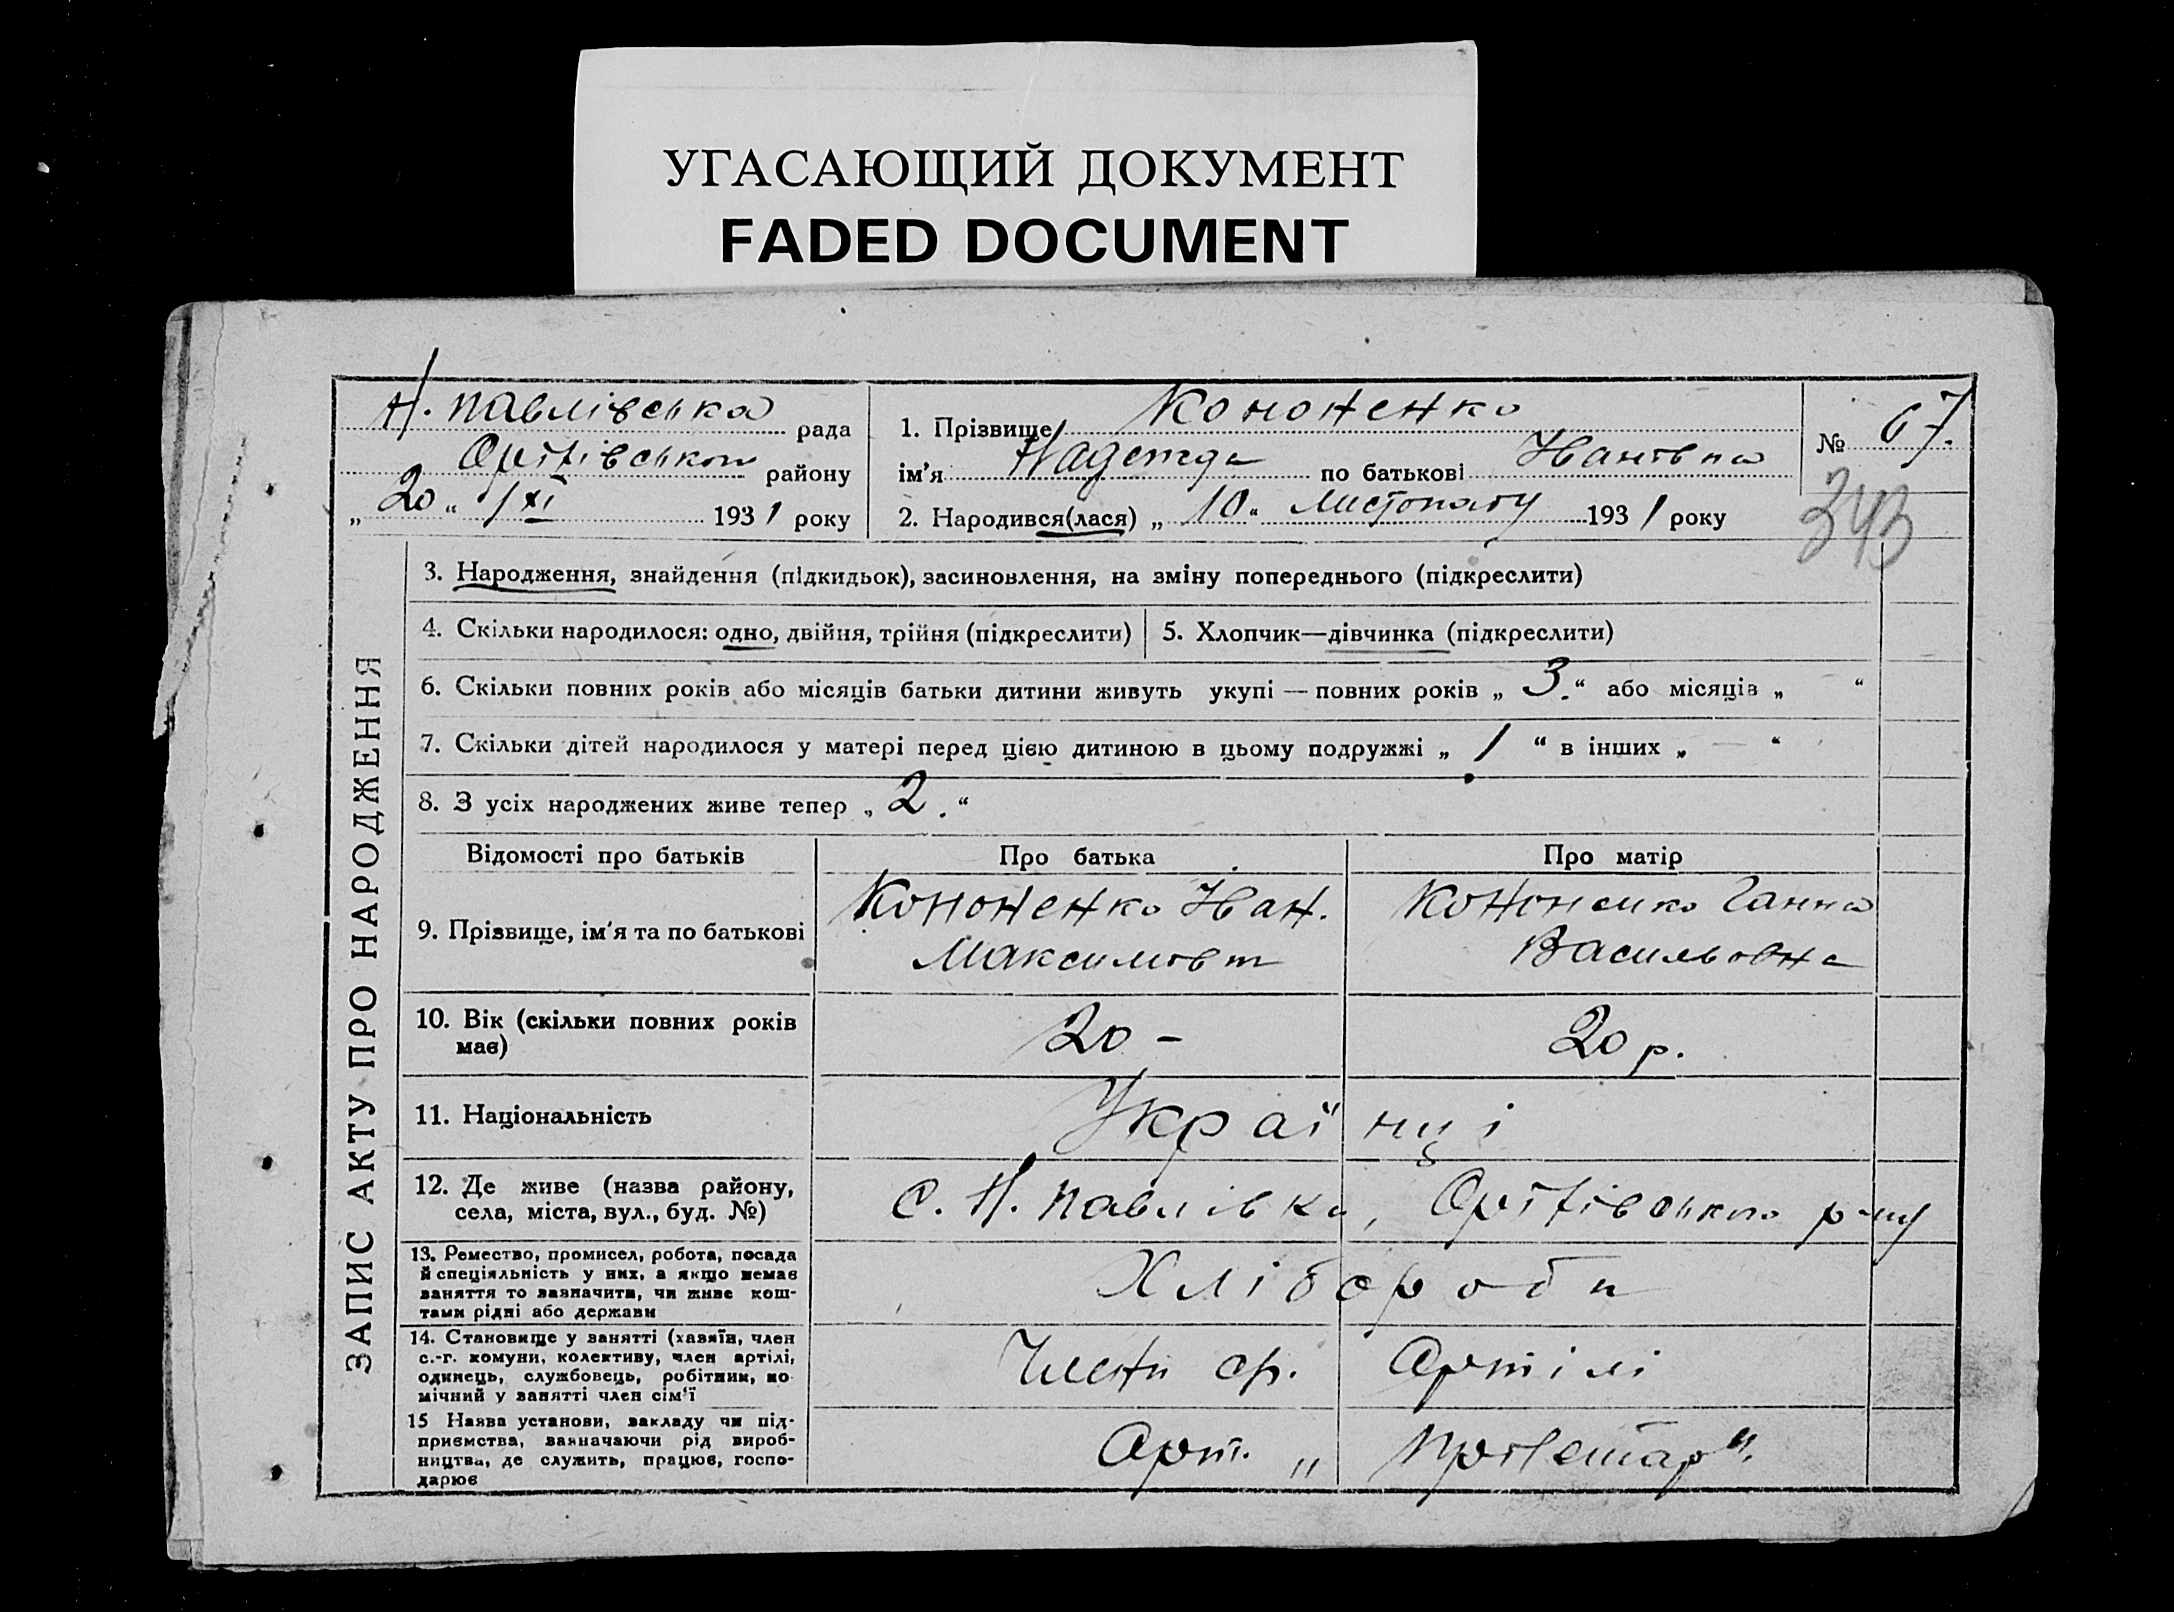 УГАСАЮЩИЙ ДОКУМЕНТ
FADED DOCUMENT
Н. Павлівська рада
району
„ 20 “ /XI 1931 року
1. Прізвище Кононенко
ім’я Надежда по батькові Івановна
2. Народився(лася) „ 10 “ Листопаду 1931 року
№ 67.
343
ЗАПИС АКТУ ПРО НАРОДЖЕННЯ
3. Народження, знайдення (підкидьок), засиновлення, на зміну попереднього (підкреслити)
4. Скільки народилося: одно, двійня, трійня (підкреслити)
5. Хлопчик—дівчинка (підкреслити)
6. Скільки повних років або місяців батьки дитини живуть укупі — повних років „ 3. “ або місяців „ “
7. Скільки дітей народилося у матері перед цією дитиною в цьому подружжі „ 1 “ в інших „ — “
8. З усіх народжених живе тепер „ 2. “
Відомості про батьків
Про батька
Про матір
9. Прізвище, ім’я та по батькові
Кононенко Іван.
Максимовт
Кононенко Ганна
Васильовна
10. Вік (скільки повних років
має)
20 –
20 р.
11. Національність
Українці
12. Де живе (назва району,
села, міста, вул., буд. №)
с. Н. Павлівка, р-ну
13. Ремество, промисел, робота, посада
й спеціяльність у них, а якщо немає
заняття то зазначити, чи живе кош-
тами рідні або держави
Хлібороби
14. Становище у занятті (хазяїн, член
с.-г. комуни, колективу, член артілі,
одинець, службовець, робітник, по-
мічний у занятті член сім’ї
Члени ср. Артілі
15 Назва установи, закладу чи під-
приємства, зазначаючи рід вироб-
ництва, де служить, працює, госпо-
дарює
Арт. „Пролетар“.